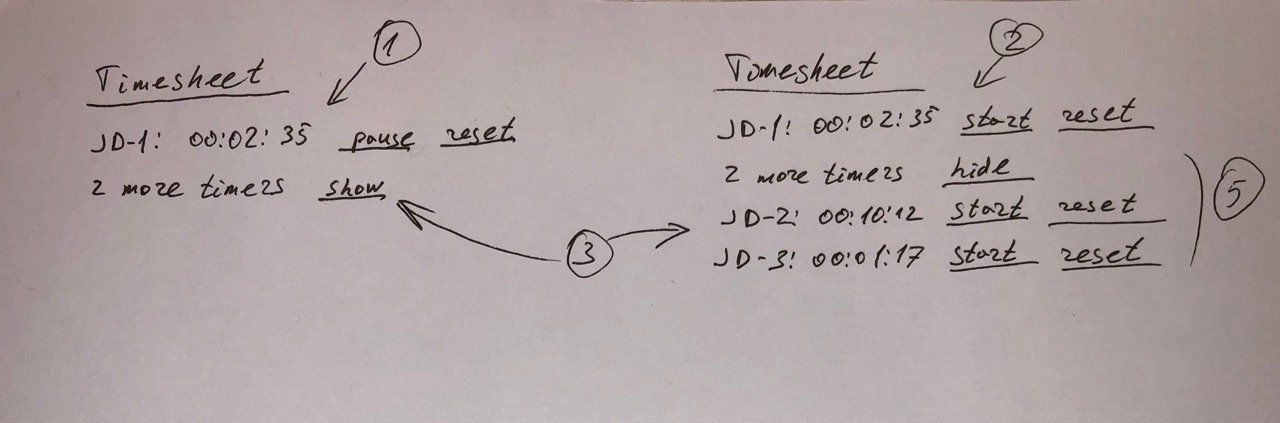 1
Timesheet
JD-1: 00:02:35 pause reset
2 more timers show
3
2
Timesheet
JD-1: 00:02:35 start reset
2 more timers hide
JD-2: 00:10:12 start reset
JD-3: 00:01:17 start reset
5